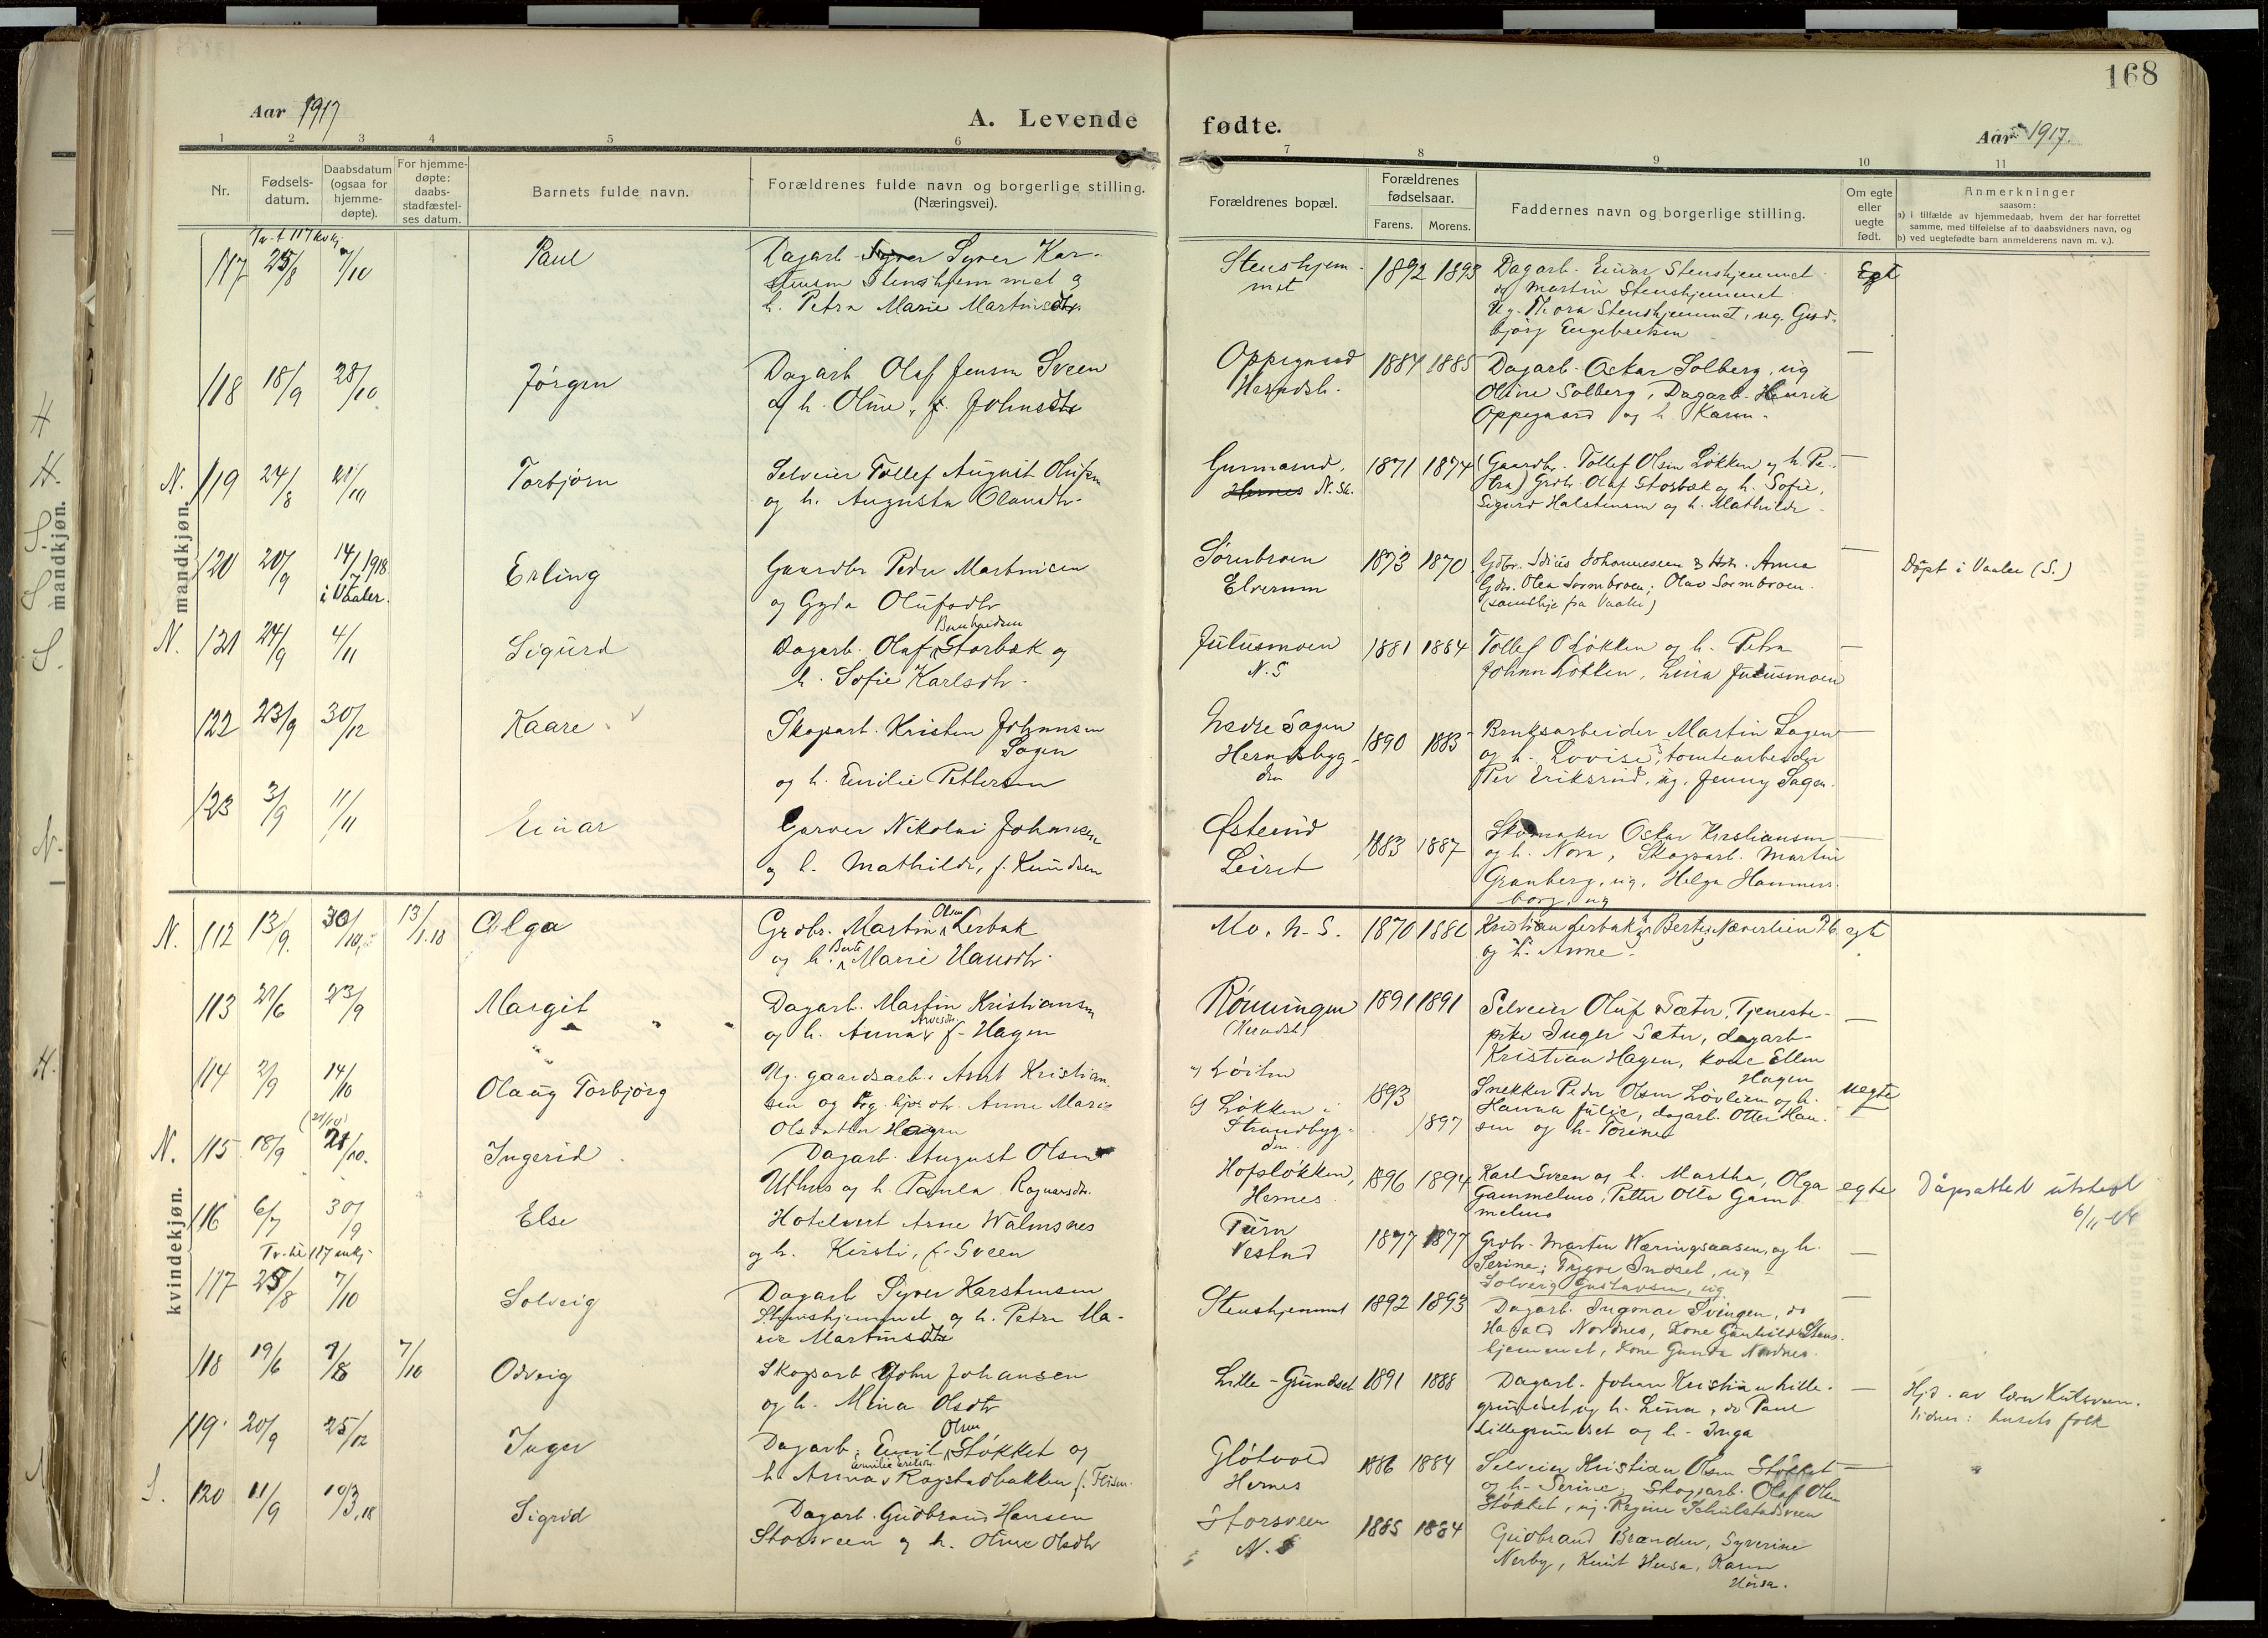 168
Aar 1917
A. Levende
fødte.
Aar 1917.
1 2 3 4 5 6 7 8 9 10 11
Nr.
Fødsels-
datum.
Daabsdatum
(ogsaa for
hjemme-
døpte).
For hjemme-
døpte:
daabs-
stadfæstel-
ses datum.
Barnets fulde navn.
Forældrenes fulde navn og borgerlige stilling.
(Næringsvei).
Forældrenes bopæl.
Forældrenes
fødselsaar.
Farens. Morens.
Faddernes navn og borgerlige stilling.
Om egte
eller
uegte
født.
Anmerkninger
saasom:
a) i tilfælde av hjemmedaab, hvem der har forrettet
samme, med tilføielse af to daabsvidners navn, og
b) ved uegtefødte barn anmelderens navn m. v.).
mandkjøn.
117 25/8 7/10 Paul
Dagarb. Syver Kar-
stensen Stenshjemmet og
h. Petra Marie Martinsdtr.
Stenshjem-
met
1892 1893
Dagarb. Einar Stenshjemmet
og Martin Stenshjemmet
Ug. Thora Stenshjemmet, ug. Gud-
bjørg Engebretsen
Egt
118 18/9 28/10 Jørgen
Dagarb. Olaf Jensen Sveen
og h. Oline, f. Johnsdtr
Oppegaard
Hernesb.
1884 1885
Dagarb. Oskar Solberg, ug
Oline Solberg, Dagarb. Henrik
Oppegaard og h. Karen.
N. 119 24/8 21/10 Torbjørn
Selveier Tollef August Olufsen
og h. Augusta Olausdtr.
Gunnarud,
Hernes N. Sk.
1871 1874
(Gaardbr. Tollef Olsen Løkken og h. Pe-
tra) Grdbr. Olaf Storbæk og h. Sofie,
Sigurd Halstensen og h. Mathilde
120 20/9 14/1 1918
i Vaaler.
Erling
Gaardbr Peder Martinsen
og Gyda Olufsdtr
Sørnbroen
Elverum
1873 1870
Gdbr. Johannessen og Anna
Gdbr. Olea Sormbroen, Olav Sormbroen.
(samtlige fra Vaaler)
Døpt i Vaaler (S.)
N. 121 24/9 4/11 Sigurd
Bernhardsen
Dagarb. Olaf Storbæk og
h. Sofie Karlsdtr.
Julusmoen
N. S
1881 1884
Tollef O Løkken og h. Petra
Johan Løkken, Lina Julusmoen
122 23/9 30/12 Kaare
Skogarb. Kristen Johansen
Sagen
og h. Emilie Pettersen
Nedre Sagen
Hernesbyg-
den
1890 1883
Bruksarbeider Martin Sagen
og h. Lovise, tomtearbeider
Per Eriksrud, ug. Jenny Sagen.
123 3/9 11/11 Einar
Garver Nikolai Johansen
og h. Mathilde, f. Knudsen
Østerud
Leiret
1883 1887
Skomaker Oskar Kristiansen
og h. Nora, Skogsarb. Martin
Granberg, ug, Helga Hammers-
borg, ug
kvindekjøn.
N. 112 13/9. 30/10 13/1.18 Alga
Olsen
Grdbr. Martin Lerbak
Berte
og h. Marie Hansdtr.
Mo. N. S.
1870 1886
Kristian Lerbak, Berte Næverlien
og h. Anne.
egt
113 21/6 23/9 Margit
Dagarb. Martin Kristiansen
og h. Anna f. Hagen
Rønningen
(Hernesb)
1891 1891
Selveier Oluf Sæter, Tjeneste-
pike Inger Sæter, dagarb.
Kristian Hagen, kone Ellen
Hagen
114 2/9 14/10 Olaug Torbjørg
Ug. gaardsarb. Arnt Kristian-
sen og Ug. Anne Marie
Olsdatter Hagen
a) Løiten
b) Løkken i
Strandbyg-
den
1893
1897
Snekker Peder Olsen Løvlien og h.
Hanna Julie, dagarb. Otter Han-
sen og h. Torine
uegte
N. 115 18/9 21/10. Ingerid
Dagarb. August Olsen
Uthus og h. Paula Ragnarsdtr.
Hofsløkken,
Hernes
1896 1894
Karl Sveen og h. Martha, Olga
Gammelmo, Petter Otto Gam
melmo
egte
Dåpsattest utstedt
116 6/7 30/9 Else
Hotelvert Arne Walmsnes
og h. Kirsti, f. Sveen
Vestad
1877 1877
Grdbr. Martin Næringsaasen, og h.
Serine, Trygve Indset, ug
Solveig Gustavsen, ug.
117 25/8 7/10 Solveig
Dagarb Syver Karstensen
Stenshjemmet og h. Petra Ma-
rie Martinsdtr
Stenshjemmet
1892 1893
Dagarb. Ingmar Svingen, do
Harald Nordnes, Kone Gunhild Stens-
hjemmet, Kone Gunda Nordnes.
118 19/6 7/10 Odveig
Skogsarb John Johansen
og h. Mina Olsdtr
Lille-Grundset
1891 1888
Dagarb. Johan Kristian Lille-
grundset og h. Lina, do Paul
Lillegrundset og h. Inga
Hjd. av
Vidner: husets folk
119. 20/9 25/12 Inger
Olsen
Dagarb. Emil Støkket og
h. Anna Rogstadbakken
Gløtvold
Hernes
1886 1884
Selveier Kristian Olsen Støkket
og h. Serine, Skogsarb. Olaf Olsen
Støkket, ug. Regine Schulstadsveen
S. 120 11/9 10/3.18 Sigrid
Dagarb. Gudbrand Hansen
Storsveen og h. Oline Olsdtr
Storsveen
N. S
1885 1884
Gudbrand Brænden, Syverine
Nerby, Knut Husa, Karen
Husa.